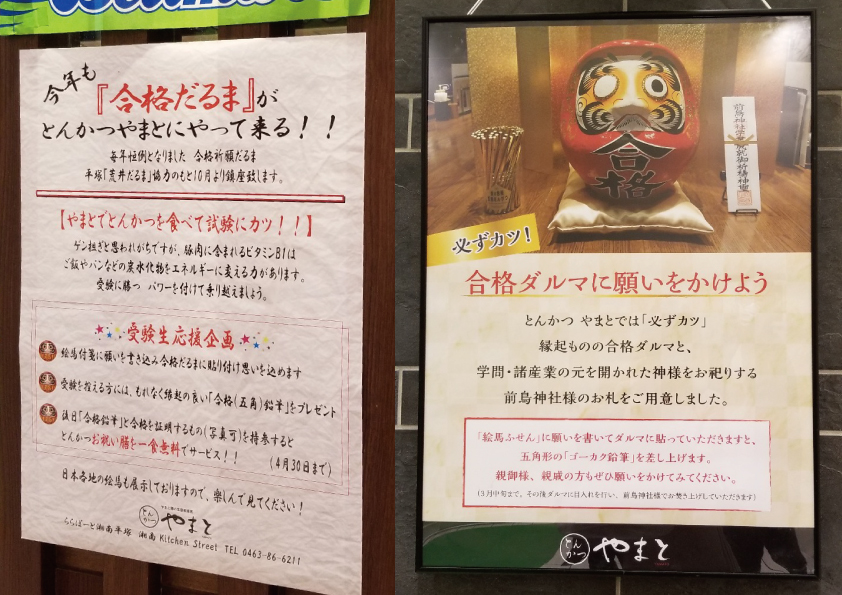 今年も
『合格だるま』が
とんかつやまとにやって来る！！
毎年恒例となりました 合格祈願だるま
平塚「荒井だるま」協力のもと10月より鎮座致します。
【やまとでとんかつを食べて試験にカツ！！】
ゲン担ぎと思われがちですが、豚肉に含まれるビタミンB1は
ご飯やパンなどの炭水化物をエネルギーに変える力があります。
受験に勝つ パワーを付けて乗り越えましょう。
受験生応援企画
絵馬付箋に願いを書き込み合格だるまに貼り付け思いを込めます
受験を控える方には、もれなく縁起の良い「合格(五角)鉛筆」をプレゼント
後日「合格鉛筆」と合格を証明するもの(写真可)を持参すると
とんかつお祝い膳を一食無料でサービス！！
(4月30日まで)
日本各地の絵馬も展示しておりますので、楽しんで見てください！
とんかつ やまと
ららぽーと湘南平塚 湘南 Kitchen Street TEL 0463-86-6211
合格
必ずカツ！
合格ダルマに願いをかけよう
とんかつ やまとでは「必ずカツ」
縁起ものの合格ダルマと、
学問・諸産業の元を開かれた神様をお祀りする
前鳥神社様のお札をご用意しました。
「絵馬ふせん」に願いを書いてダルマに貼っていただきますと、
五角形の「ゴーカク鉛筆」を差し上げます。
親御様、親戚の方もぜひ願いをかけてみてください。
(3月中旬まで。その後ダルマには入れを行い、前鳥神社様でお焚き上げしていただきます)
とんかつ やまと